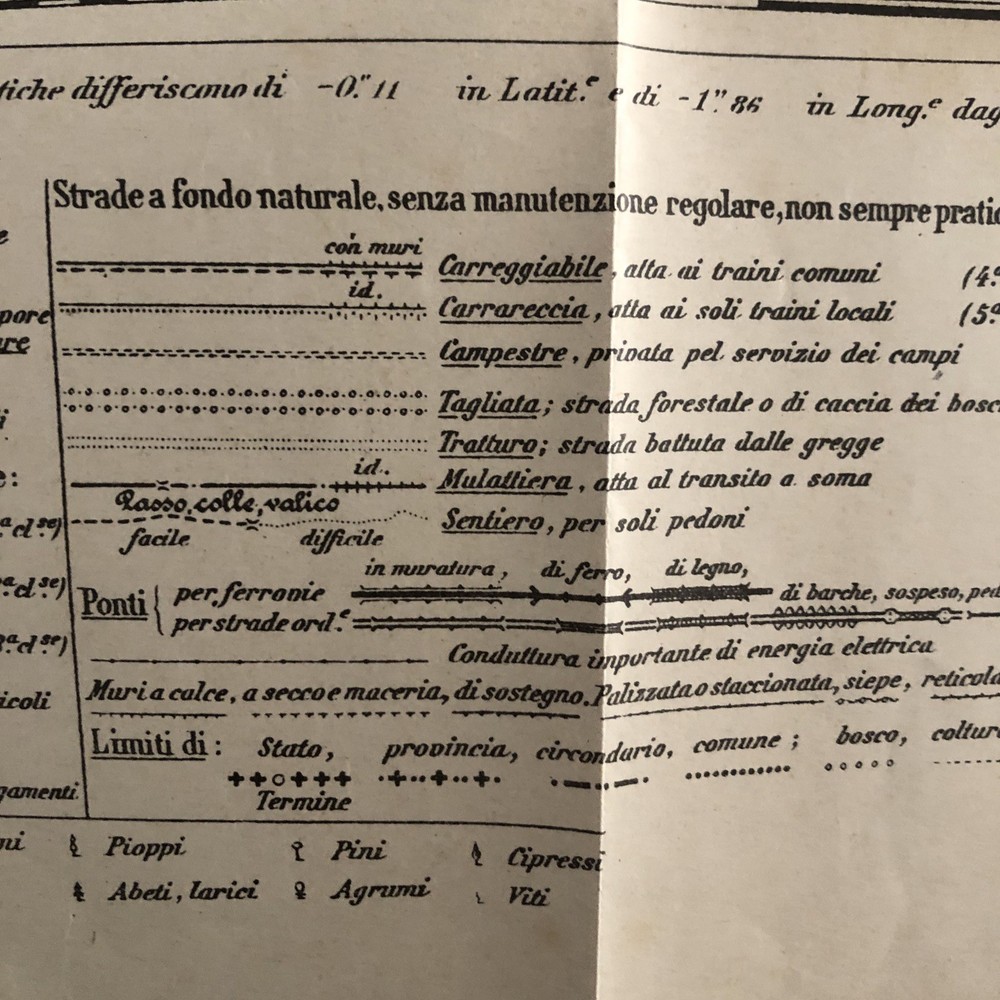 tiche differiscono di -0."11 in Latit.e e di -1."86 in Long.e dag
Strade a fondo naturale, senza manutenzione regolare, non sempre pratic
con muri
Carreggiabile, atta ai traini comuni (4.a
id.
pore Carrareccia, atta ai soli traini locali (5.a
re Campestre, privata pel servizio dei campi
Tagliata; strada forestale o di caccia dei bosc
Tratturo; strada battuta dalle gregge
e: id. Mulattiera, atta al transito a soma
Passo, colle, valico
a cl.se) Sentiero, per soli pedoni
facile difficile
in muratura, di ferro, di legno,
a cl.se) Ponti { per ferrovie di barche, sospeso, ped
per strade ord.e
a cl.se) Conduttura importante di energia elettrica
icoli Muri a calce, a secco e maceria, di sostegno. Palizzata o staccionata, siepe, reticola
Limiti di: Stato, provincia, circondario, comune; bosco, coltur
gamenti. Termine
ni Pioppi Pini Cipressi
Abeti, larici Agrumi Viti